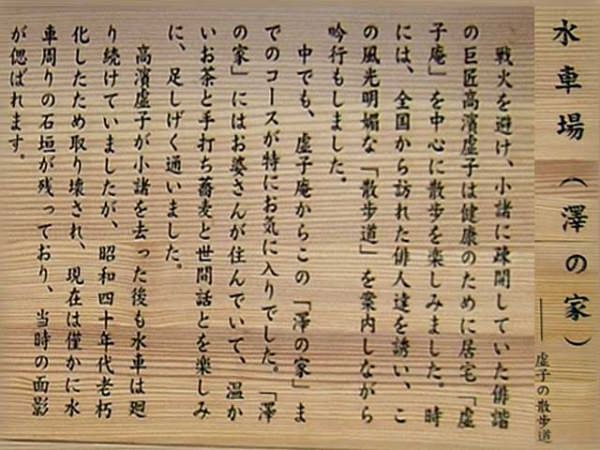 水車場（澤の家）
――虚子の散歩道
戦火を避け、小諸に疎開していた俳諧
の巨匠高濱虚子は健康のために居宅「虚
子庵」を中心に散歩を楽しみました。時
には、全国から訪れた俳人達を誘い、こ
の風光明媚な「散歩道」を案内しながら
吟行もしました。
中でも、虚子庵からこの「澤の家」ま
でのコースが特にお気に入りでした。「澤
の家」にはお婆さんが住んでいて、温か
いお茶と手打ち蕎麦と世間話とを楽しみ
に、足しげく通いました。
高濱虚子が小諸を去った後も水車は廻
り続けていましたが、昭和四十年代老朽
化したため取り壊され、現在は僅かに水
車周りの石垣が残っており、当時の面影
が偲ばれます。